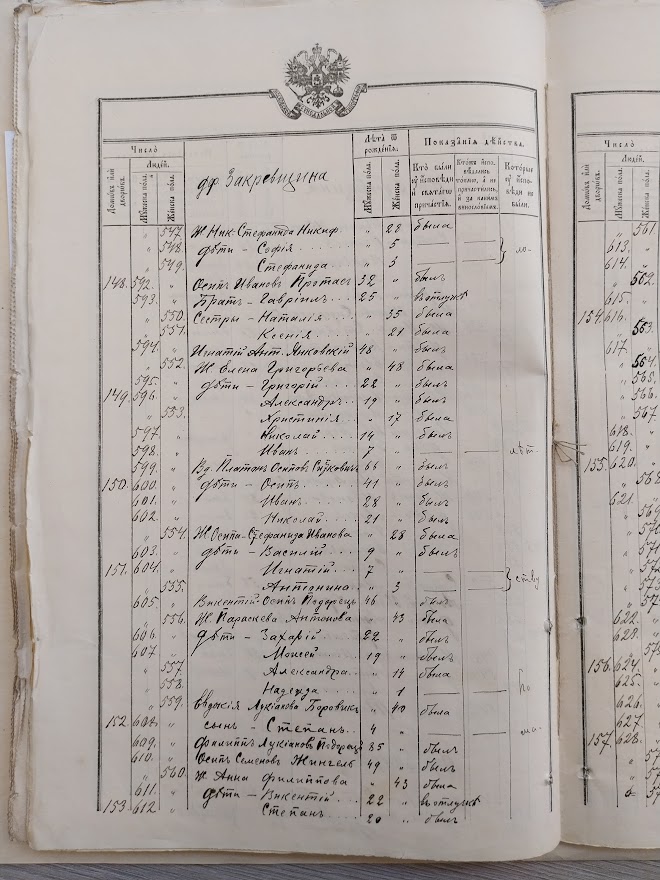 Число
Людей.
Домовъ или дворовъ.
Мужеска пола.
Женска пола.
др Закревщина
Лѣта отъ рожденія.
Мужеска пола.
Женска пола.
Показанія дѣйства.
Кто были у исповѣди и святаго причастія.
Которые у исповѣди не были.
„ 547. Ж Ник. Стефанида Никиф. „ 28 была
„ 548. дѣти – Софія „ 5
„ 549. Стефанида „ 3 } ло-
148. 592. „ Осипъ Ивановъ Протас 32 „ былъ
593. „ Братъ – Гавріилъ 25 „ въ отлучкѣ
„ 550. Сестры – Наталія „ 35 была
„ 551. Ксенія „ 21 была
594. „ Игнатій Ант. Янковскій 48 „ былъ
„ 552. Ж Елена Григорьева „ 48 была
595. „ дѣти – Григорій 22 „ былъ
149. 596. „ Александръ 19 „ былъ
„ 553. Христинія „ 17 была
597. „ Николай 14 „ былъ
598. „ Иванъ 7 „
599. „ Вд. Платонъ Осиповъ 66 „ былъ
150. 600. „ дѣти – Осипъ 41 „ былъ
601. „ Иванъ 28 „ былъ
602. „ Николай 21 „ былъ
„ 554. Ж Осипа – Стефанида Иванова „ 28 была
603. „ дѣти – Василій 9 „ былъ
151. 604. „ Игнатій 7 „
„ 555. Антонина „ 3 } ству
605. „ Викентій Осипъ 46 „ былъ
„ 556. Ж. Параскева Антонова „ 43 была
606. „ дѣти – Захарій 22 „ былъ
607. „ Моисей 19 „ былъ
„ 557. Александра „ 14 была
„ 558. Надежда „ 1
„ 559. Евдокія Лукіанова „ 40 была
152. 608. „ сынъ – Степанъ 4 „ ма-
609. „ Филиппъ Лукіановъ 85 „ былъ
610. „ Осипъ Семеновъ Жингель 49 „ былъ
„ 560. Ж Анна Филиппова „ 43 была
611. „ дѣти – Викентій 22 „ въ отлучкѣ
153. 612. „ Степанъ 20 „ былъ
Число
Домовъ или дворовъ.
Мужеска пола.
„ 561.
613. „
614. „
„ 562.
615. „
154. 616.
„ 563.
617. „
„ 564.
„ 565.
„ 566.
„ 567.
618.
619.
155. 620.
621.
622.
623.
156. 624.
625.
626.
627.
157. 628.